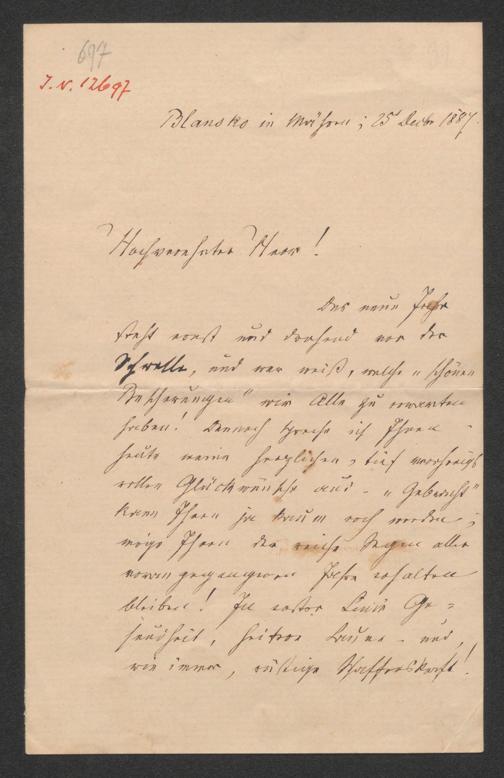 697
I.N. 12697
Blansko in Mähren; 25t Decbr 1887.
Hochverehrter Herr!
Das neue Jahr
steht ernst und drohend vor der
Schwelle, und wer weiß, welche „schönen
Bescherungen" wir Alle zu erwarten
haben! Dennoch spreche ich Ihnen
heute meine herzlichen, tief
vollen Glückwünsche aus. „Gebracht"
kann Ihnen ja kaum noch werden;
möge Ihnen der reiche Segen aller
vorangegangenen Jahre erhalten
bleiben! In erster Linie Ge-
sundheit, heitere Laune - und,
wie immer, rüstige Schaffenskraft!